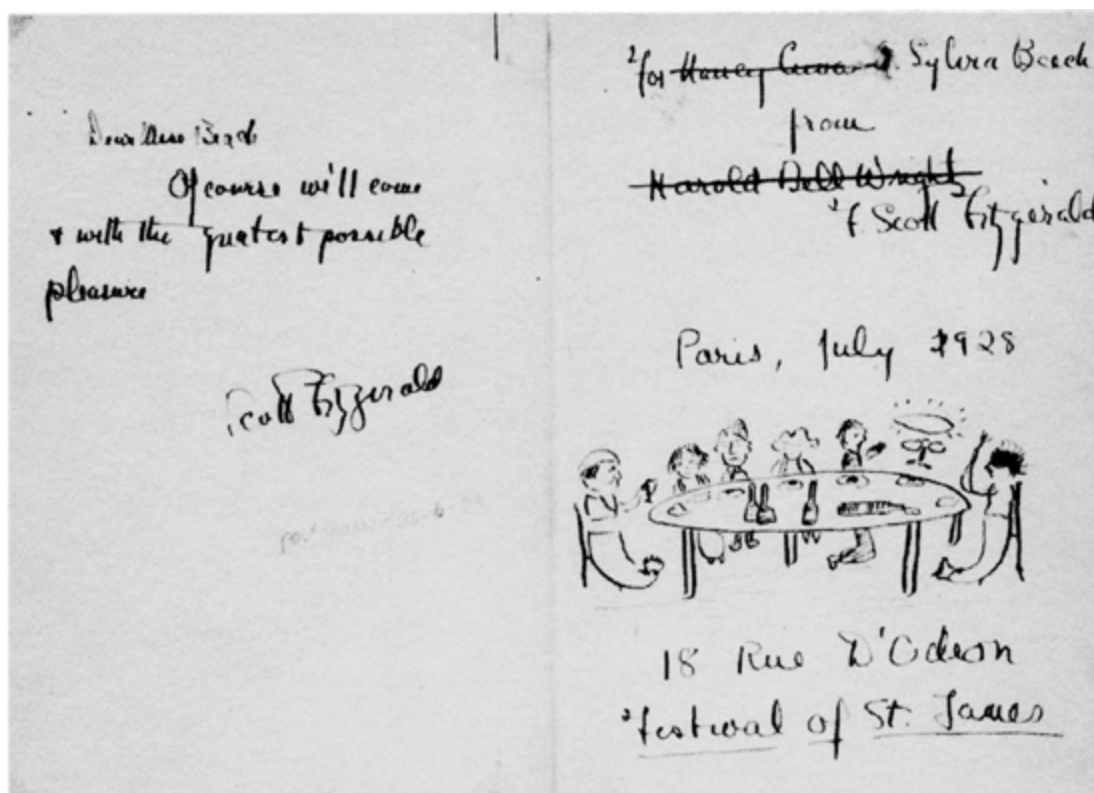 Dear Miss Beach
Of course will come
+ with the greatest possible
pleasure
Scott Fitzgerald
for Sylvia Beach
from
Harold Bell Wright
F. Scott Fitzgerald
Paris, July 1928
18 Rue D'Odeon
Festival of St. James